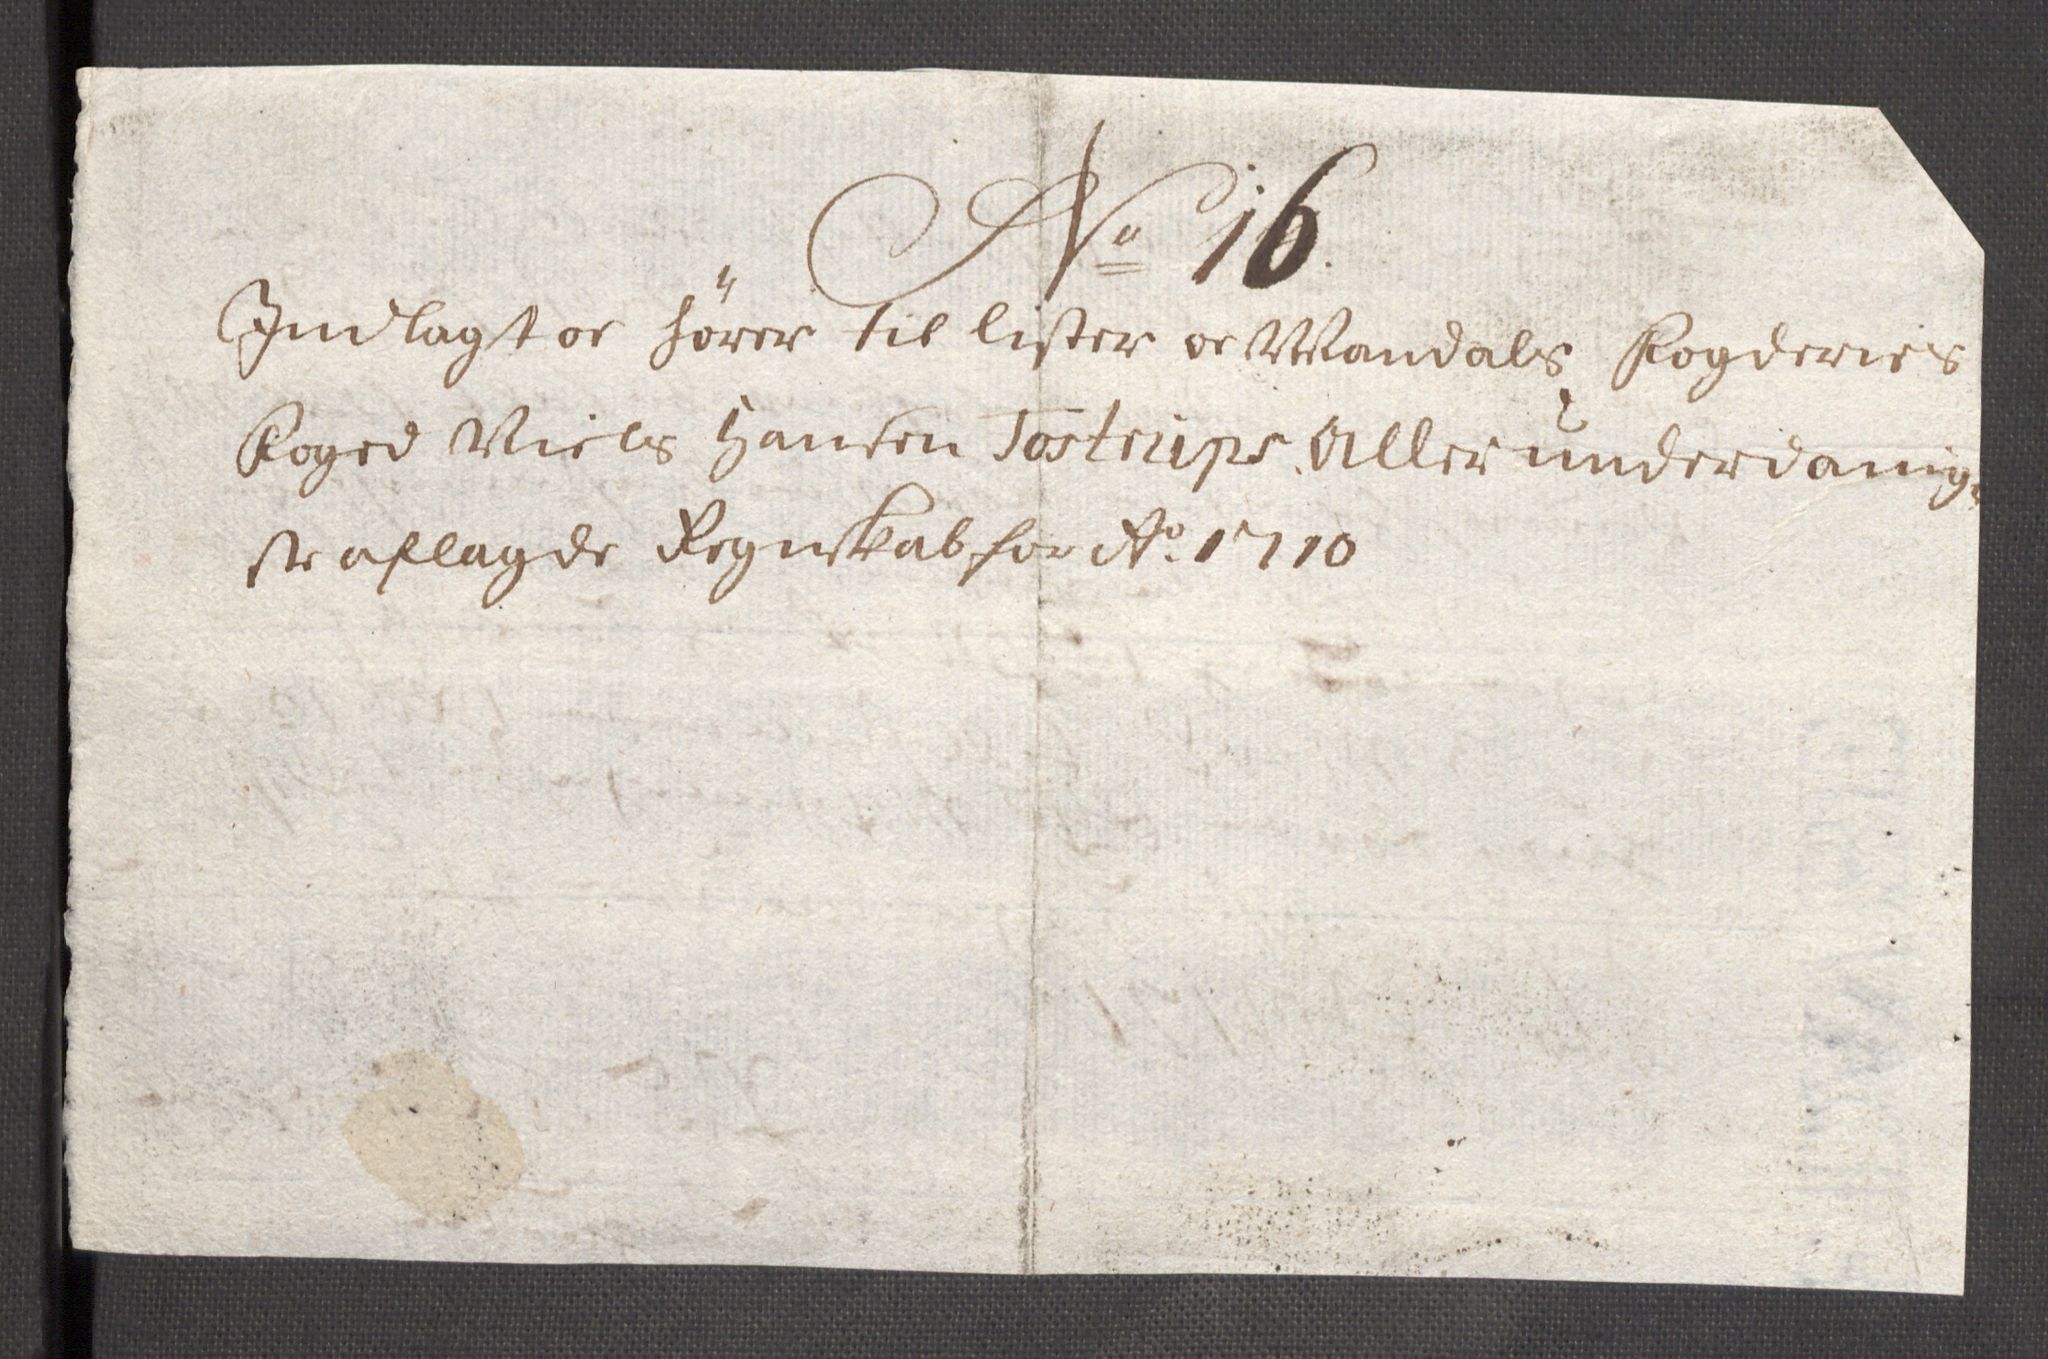 No 16.
Indlagt oc hörer til lister oc Mandals Fogderies
Foged Niels Hansen Tostrups Allerunderdanig-
ste aflagde Regnskab for Ao. 1710